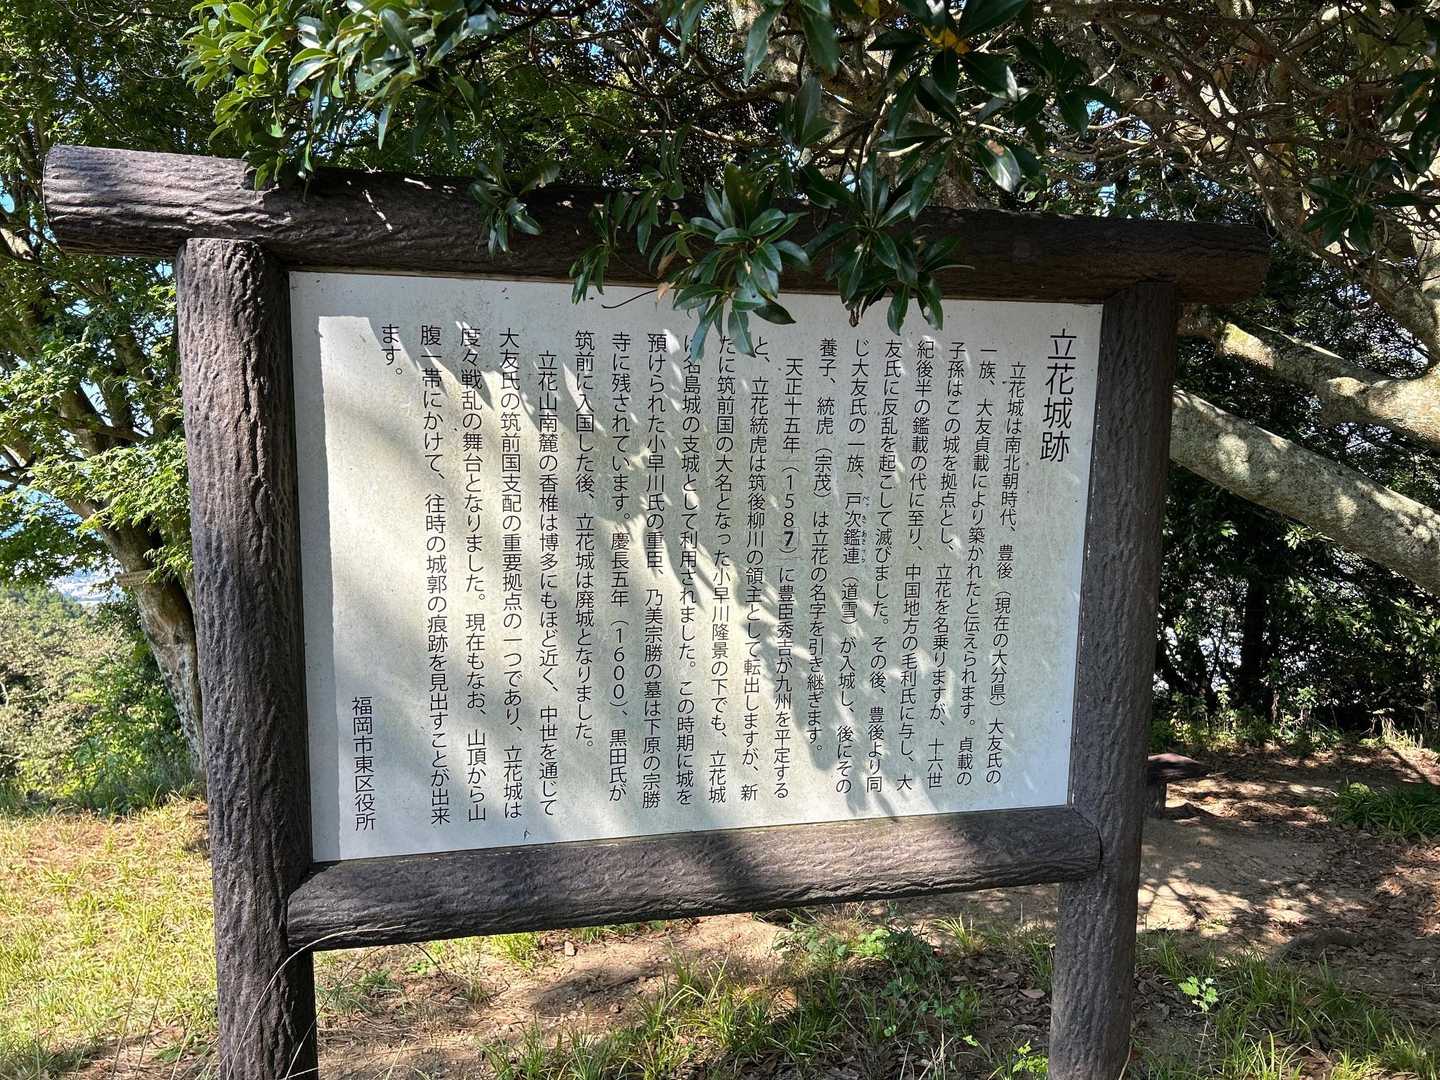 立花城跡
立花城は南北朝時代、豊後（現在の大分県）大友氏の
一族、大友貞載により築かれたと伝えられます。貞載の
子孫はこの城を拠点とし、立花を名乗りますが、十六世
紀後半の鑑載の代に至り、中国地方の毛利氏に与し、大
友氏に反乱を起こして滅びました。その後、豊後より同
じ大友氏の一族、戸次鑑連（道雪）が入城し、後にその
養子、統虎（宗茂）は立花の名字を引き継ぎます。
天正十五年（1587）に豊臣秀吉が九州を平定する
と、立花統虎は筑後柳川の領主として転出しますが、新
たに筑前国の大名となった小早川隆景の下でも、立花城
は名島城の支城として利用されました。この時期に城を
預けられた小早川氏の重臣、乃美宗勝の墓は下原の宗勝
寺に残されています。慶長五年（1600）、黒田氏が
筑前に入国した後、立花城は廃城となりました。
立花山南麓の香椎は博多にもほど近く、中世を通じて
大友氏の筑前国支配の重要拠点の一つであり、立花城は
度々戦乱の舞台となりました。現在もなお、山頂から山
腹一帯にかけて、往時の城郭の痕跡を見出すことが出来
ます。
福岡市東区役所